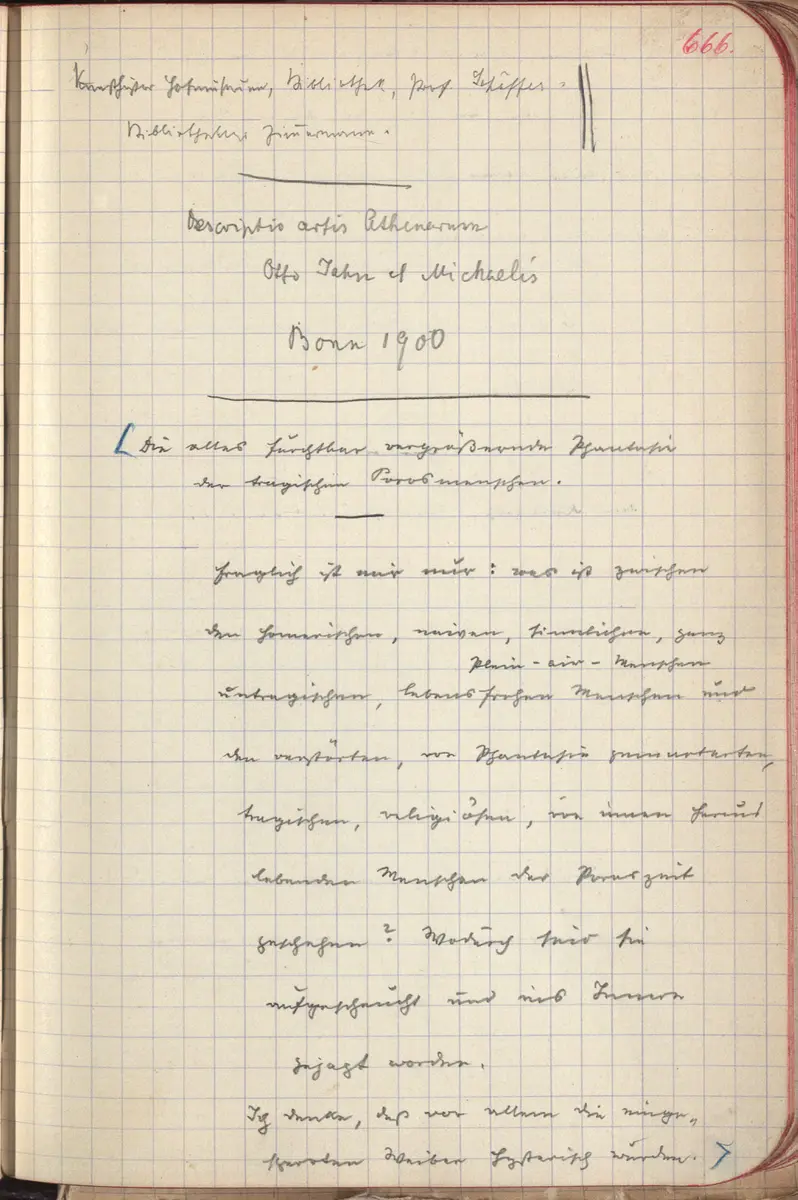 666.
Kunsthistor Hofmuseum, Bibliothek, Prof. Schäffer -
Bibliothekar Zimmermann.
Descriptio arcis Athenarum
Otto Jahn et Michaelis
Bonn 1900
[Die alles furchtbar vergrößernde Phantasie
der tragischen Porosmenschen.
Fraglich ist mir nur: was ist zwischen
den homerischen, naiven, sinnlichen, ganz
Plein-air-Menschen
untragischen, lebensfrohen Menschen und
den verstörten, von Phantasie
tragischen, religiösen, von innen heraus
lebenden Menschen der Poroszeit
geschehen? Wodurch sind sie
aufgescheucht und ins Innere
gejagt worden.
Ich denke, daß vor allem die einge„
sperrten Weiber hysterisch wurden.